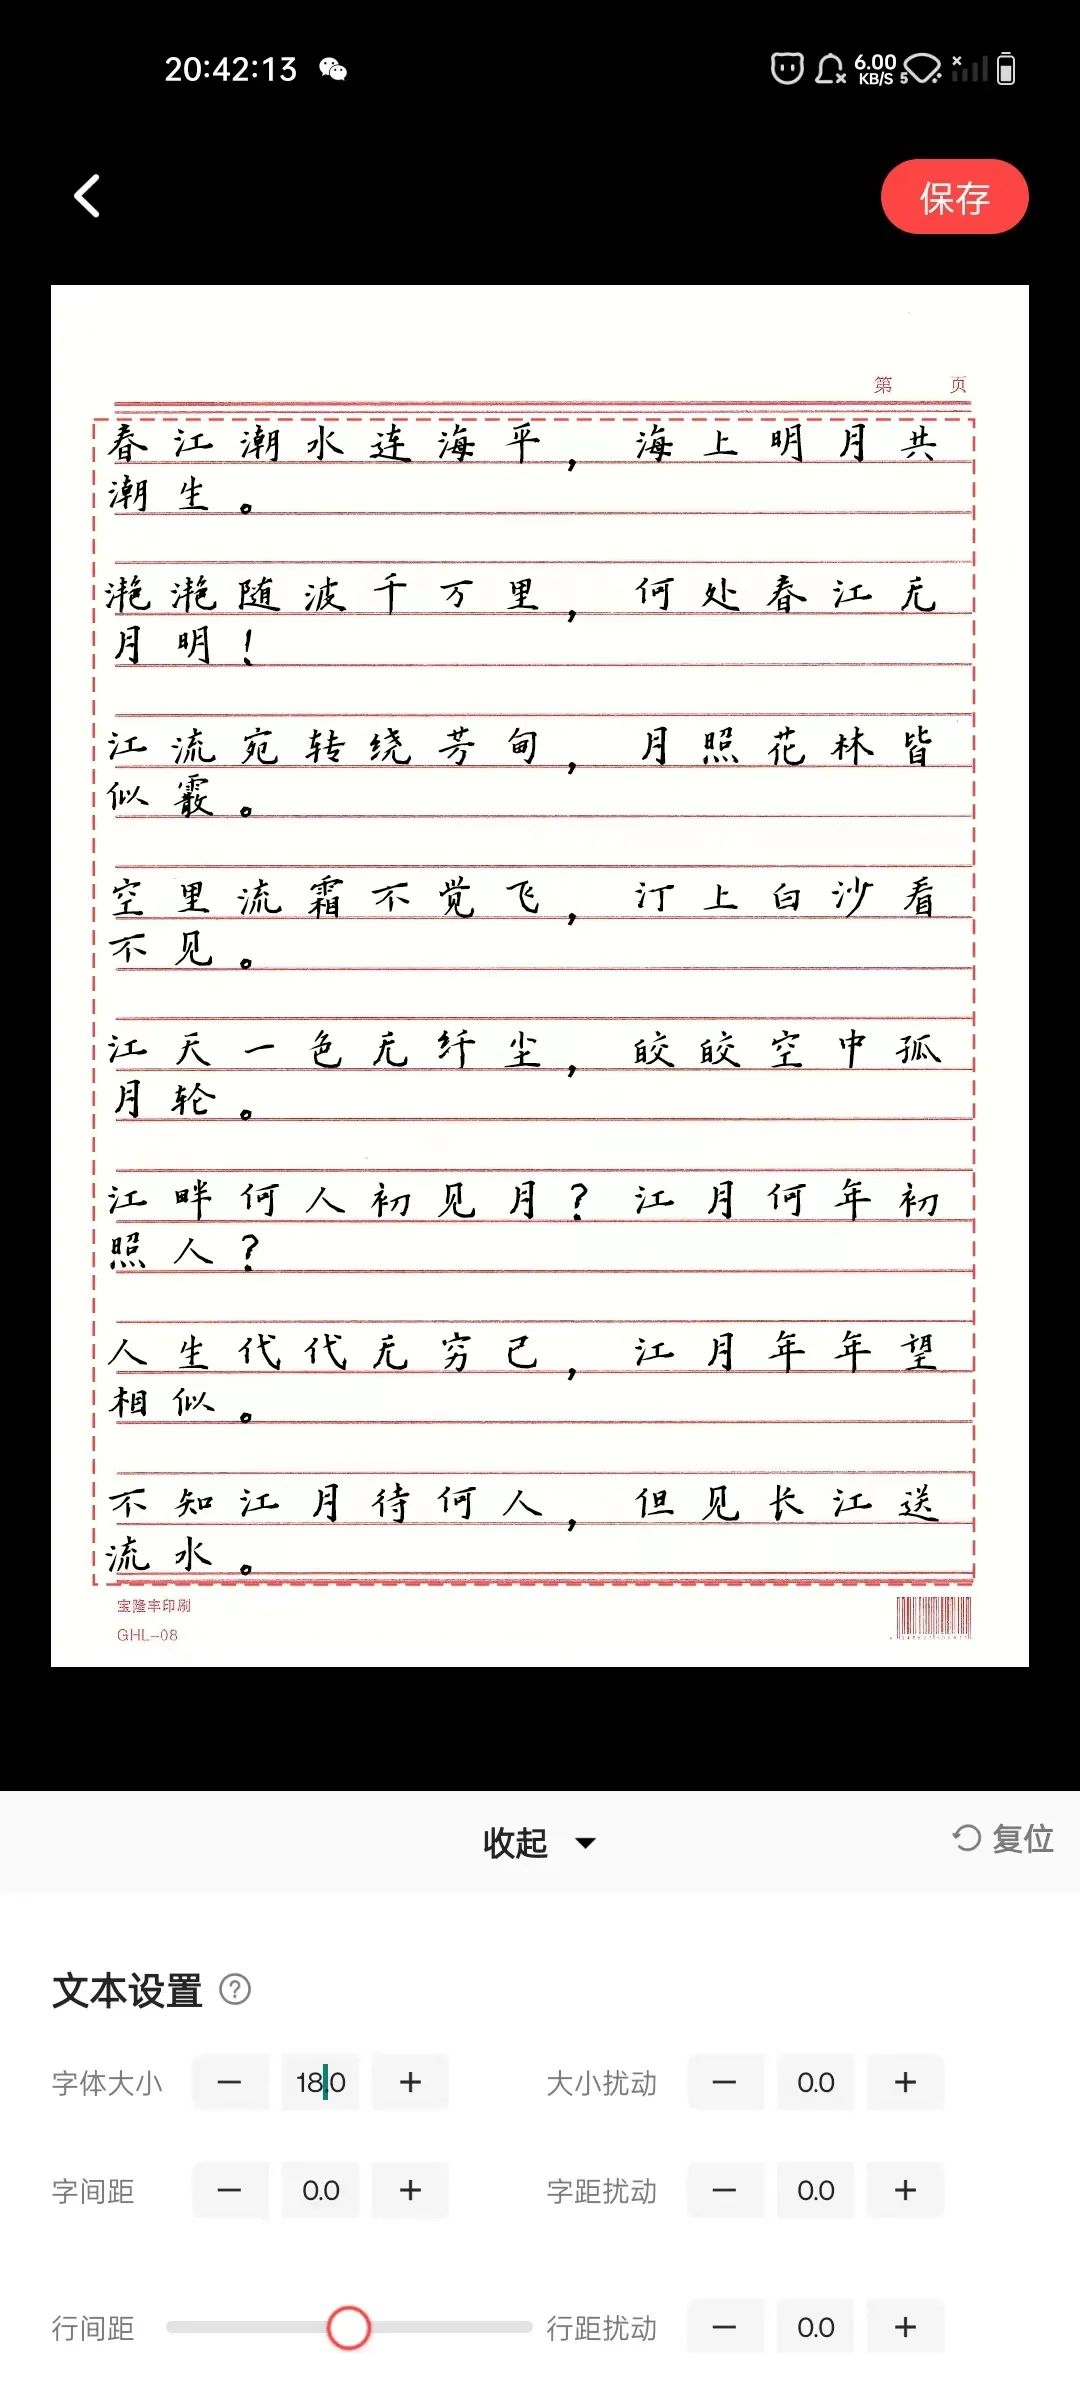 20:42:13
6.00
KB/S 5
保存
第 页
春江潮水连海平，海上明月共
潮生。
滟滟随波千万里，何处春江无
月明！
江流宛转绕芳甸，月照花林皆
似霰。
空里流霜不觉飞，汀上白沙看
不见。
江天一色无纤尘，皎皎空中孤
月轮。
江畔何人初见月？江月何年初
照人？
人生代代无穷已，江月年年望
相似。
不知江月待何人，但见长江送
流水。
宝隆丰印刷
GHL-08
收起
复位
文本设置 ?
字体大小 − 18.0 + 大小扰动 − 0.0 +
字间距 − 0.0 + 字距扰动 − 0.0 +
行间距 行距扰动 − 0.0 +